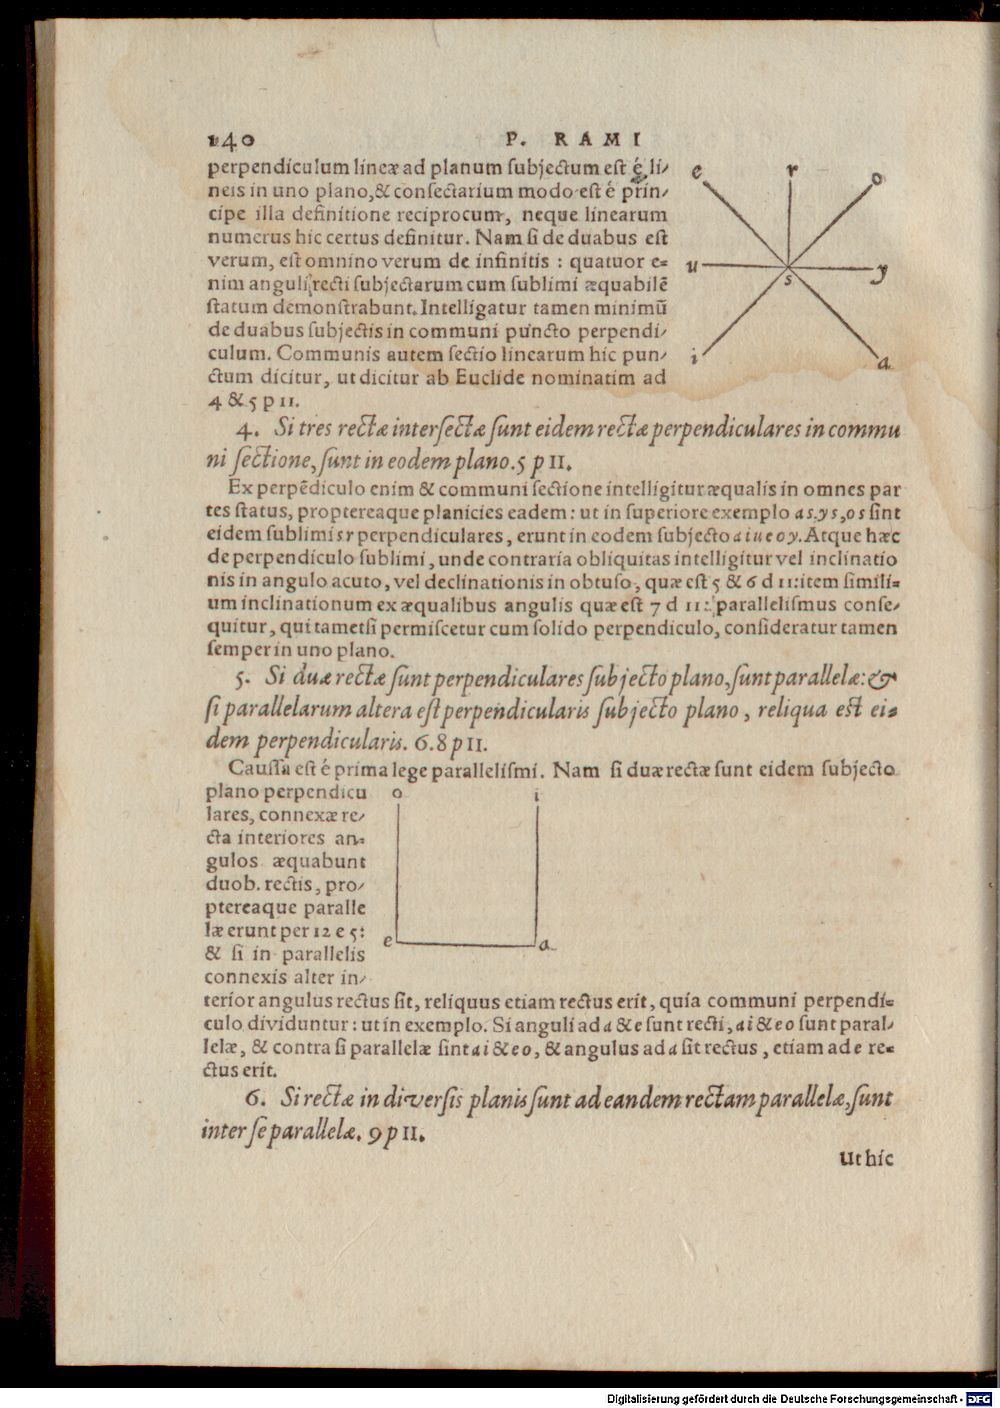 140 P. RAMI
perpendiculum lineæ ad planum ſubjectum eſt é li⸗
neis in uno plano,& conſectarium modo eſt é prin⸗
cipe illa definitione reciprocum, neque linearum
numerus hic certus definitur. Nam ſi de duabus eſt
verum, eſt omnino verum de infinitis : quatuor e⸗
nim anguli recti ſubjectarum cum ſublimi æquabilẽ
ſtatum demonſtrabunt. Intelligatur tamen minimũ
de duabus ſubjectis in communi puncto perpendi⸗
culum. Communis autem ſectio linearum hic pun⸗
ctum dicitur, ut dicitur ab Euclide nominatim ad
4 & 5 p 11.
e r o
u s y
i a
4. Si tres rectæ interſectæ ſunt eidem rectæ perpendiculares in commu
ni ſectione, ſunt in eodem plano. 5 p 11.
Ex perpẽdiculo enim & communi ſectione intelligitur æqualis in omnes par
tes ſtatus, proptereaque planicies eadem : ut in ſuperiore exemplo as, ys, os ſint
eidem ſublimi sr perpendiculares, erunt in eodem ſubjecto aiueoy. Atque hæc
de perpendiculo ſublimi, unde contraria obliquitas intelligitur vel inclinatio
nis in angulo acuto, vel declinationis in obtuſo, quæ eſt 5 & 6 d 11: item ſimili⸗
um inclinationum ex æqualibus angulis quæ eſt 7 d 11: parallelismus conſe⸗
quitur, qui tametſi permiſcetur cum ſolido perpendiculo, conſideratur tamen
ſemper in uno plano.
5. Si duæ rectæ ſunt perpendiculares ſubjecto plano, ſunt parallelæ: &
ſi parallelarum altera eſt perpendicularis ſubjecto plano, reliqua eſt ei⸗
dem perpendicularis. 6. 8 p 11.
Cauſſa eſt é prima lege paralleliſmi. Nam ſi duæ rectæ ſunt eidem ſubjecto
plano perpendicu
lares, connexæ re⸗
cta interiores an⸗
gulos æquabunt
duob. rectis, pro⸗
ptereaque paralle
læ erunt per 12 e 5:
& ſi in parallelis
connexis alter in⸗
o i
e a
terior angulus rectus ſit, reliquus etiam rectus erit, quia communi perpendi⸗
culo dividuntur : ut in exemplo. Si anguli ad a & e ſunt recti, ai & eo ſunt paral⸗
lelæ, & contra ſi parallelæ ſint ai & eo, & angulus ad a ſit rectus, etiam ad e re⸗
ctus erit.
6. Si rectæ in diverſis planis ſunt ad eandem rectam parallelæ, ſunt
inter ſe parallelæ. 9 p 11.
Ut hic
Digitalisierung gefördert durch die Deutsche Forschungsgemeinschaft - DFG